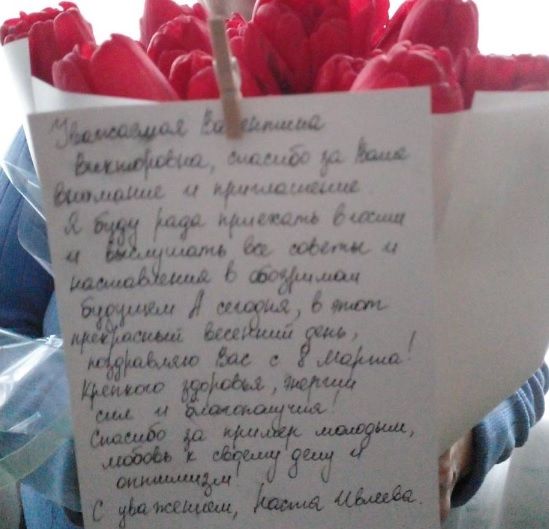 Уважаемая Валентина
Викторовна, спасибо за Ваше
внимание и приглашение.
Я буду рада приехать в гости
и выслушать все советы и
наставления в обозримом
будущем А сегодня, в этот
прекрасный весенний день,
поздравляю Вас с 8 Марта!
Крепкого здоровья, энергии
сил и благополучия!
Спасибо за пример молодым,
любовь к своему делу и
оптимизм!
С уважением, Настя Ивлеева.